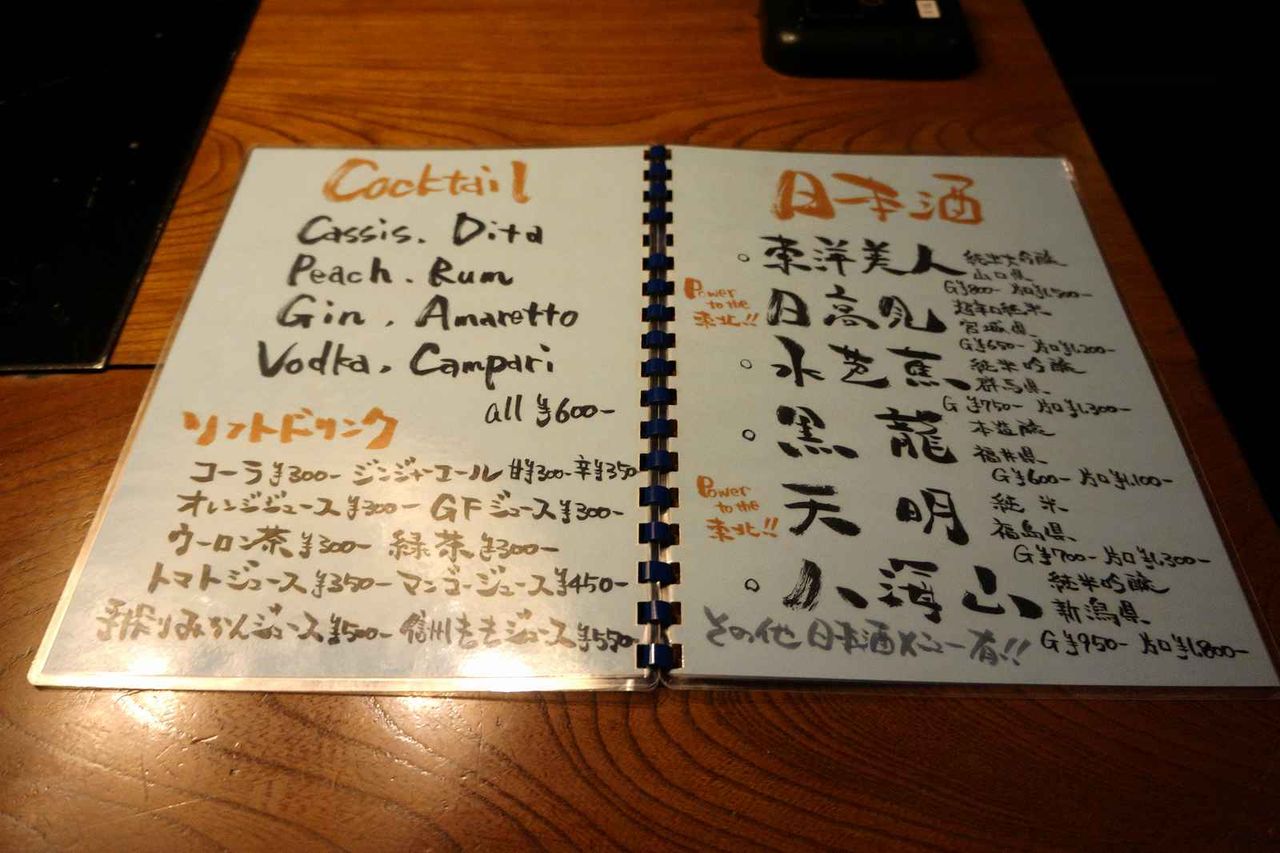 Cocktail
Cassis. Dita
Peach. Rum
Gin. Amaretto
Vodka. Campari
all ¥600-
ソフトドリンク
コーラ¥300- ジンジャーエール 甘¥300- 辛¥350
オレンジジュース¥300- GFジュース¥300-
ウーロン茶¥300- 緑茶¥300-
トマトジュース¥350- マンゴージュース¥450-
手搾りみかんジュース¥500- 信州ももジュース¥550-
日本酒
○ 東洋美人 純米大吟醸
山口県
G¥800- 片口¥1,500-
Power to the 東北!!
日高見 超辛口純米
宮城県
G¥650- 片口¥1,200-
○ 水芭蕉 純米吟醸
群馬県
G¥750- 片口¥1,300-
○ 黒龍 本造醸
福井県
G¥600- 片口¥1,100-
Power to the 東北!!
天明 純米
福島県
G¥700- 片口¥1,300-
○ 八海山 純米吟醸
新潟県
G¥950- 片口¥1,800-
その他日本酒メニュー有!!